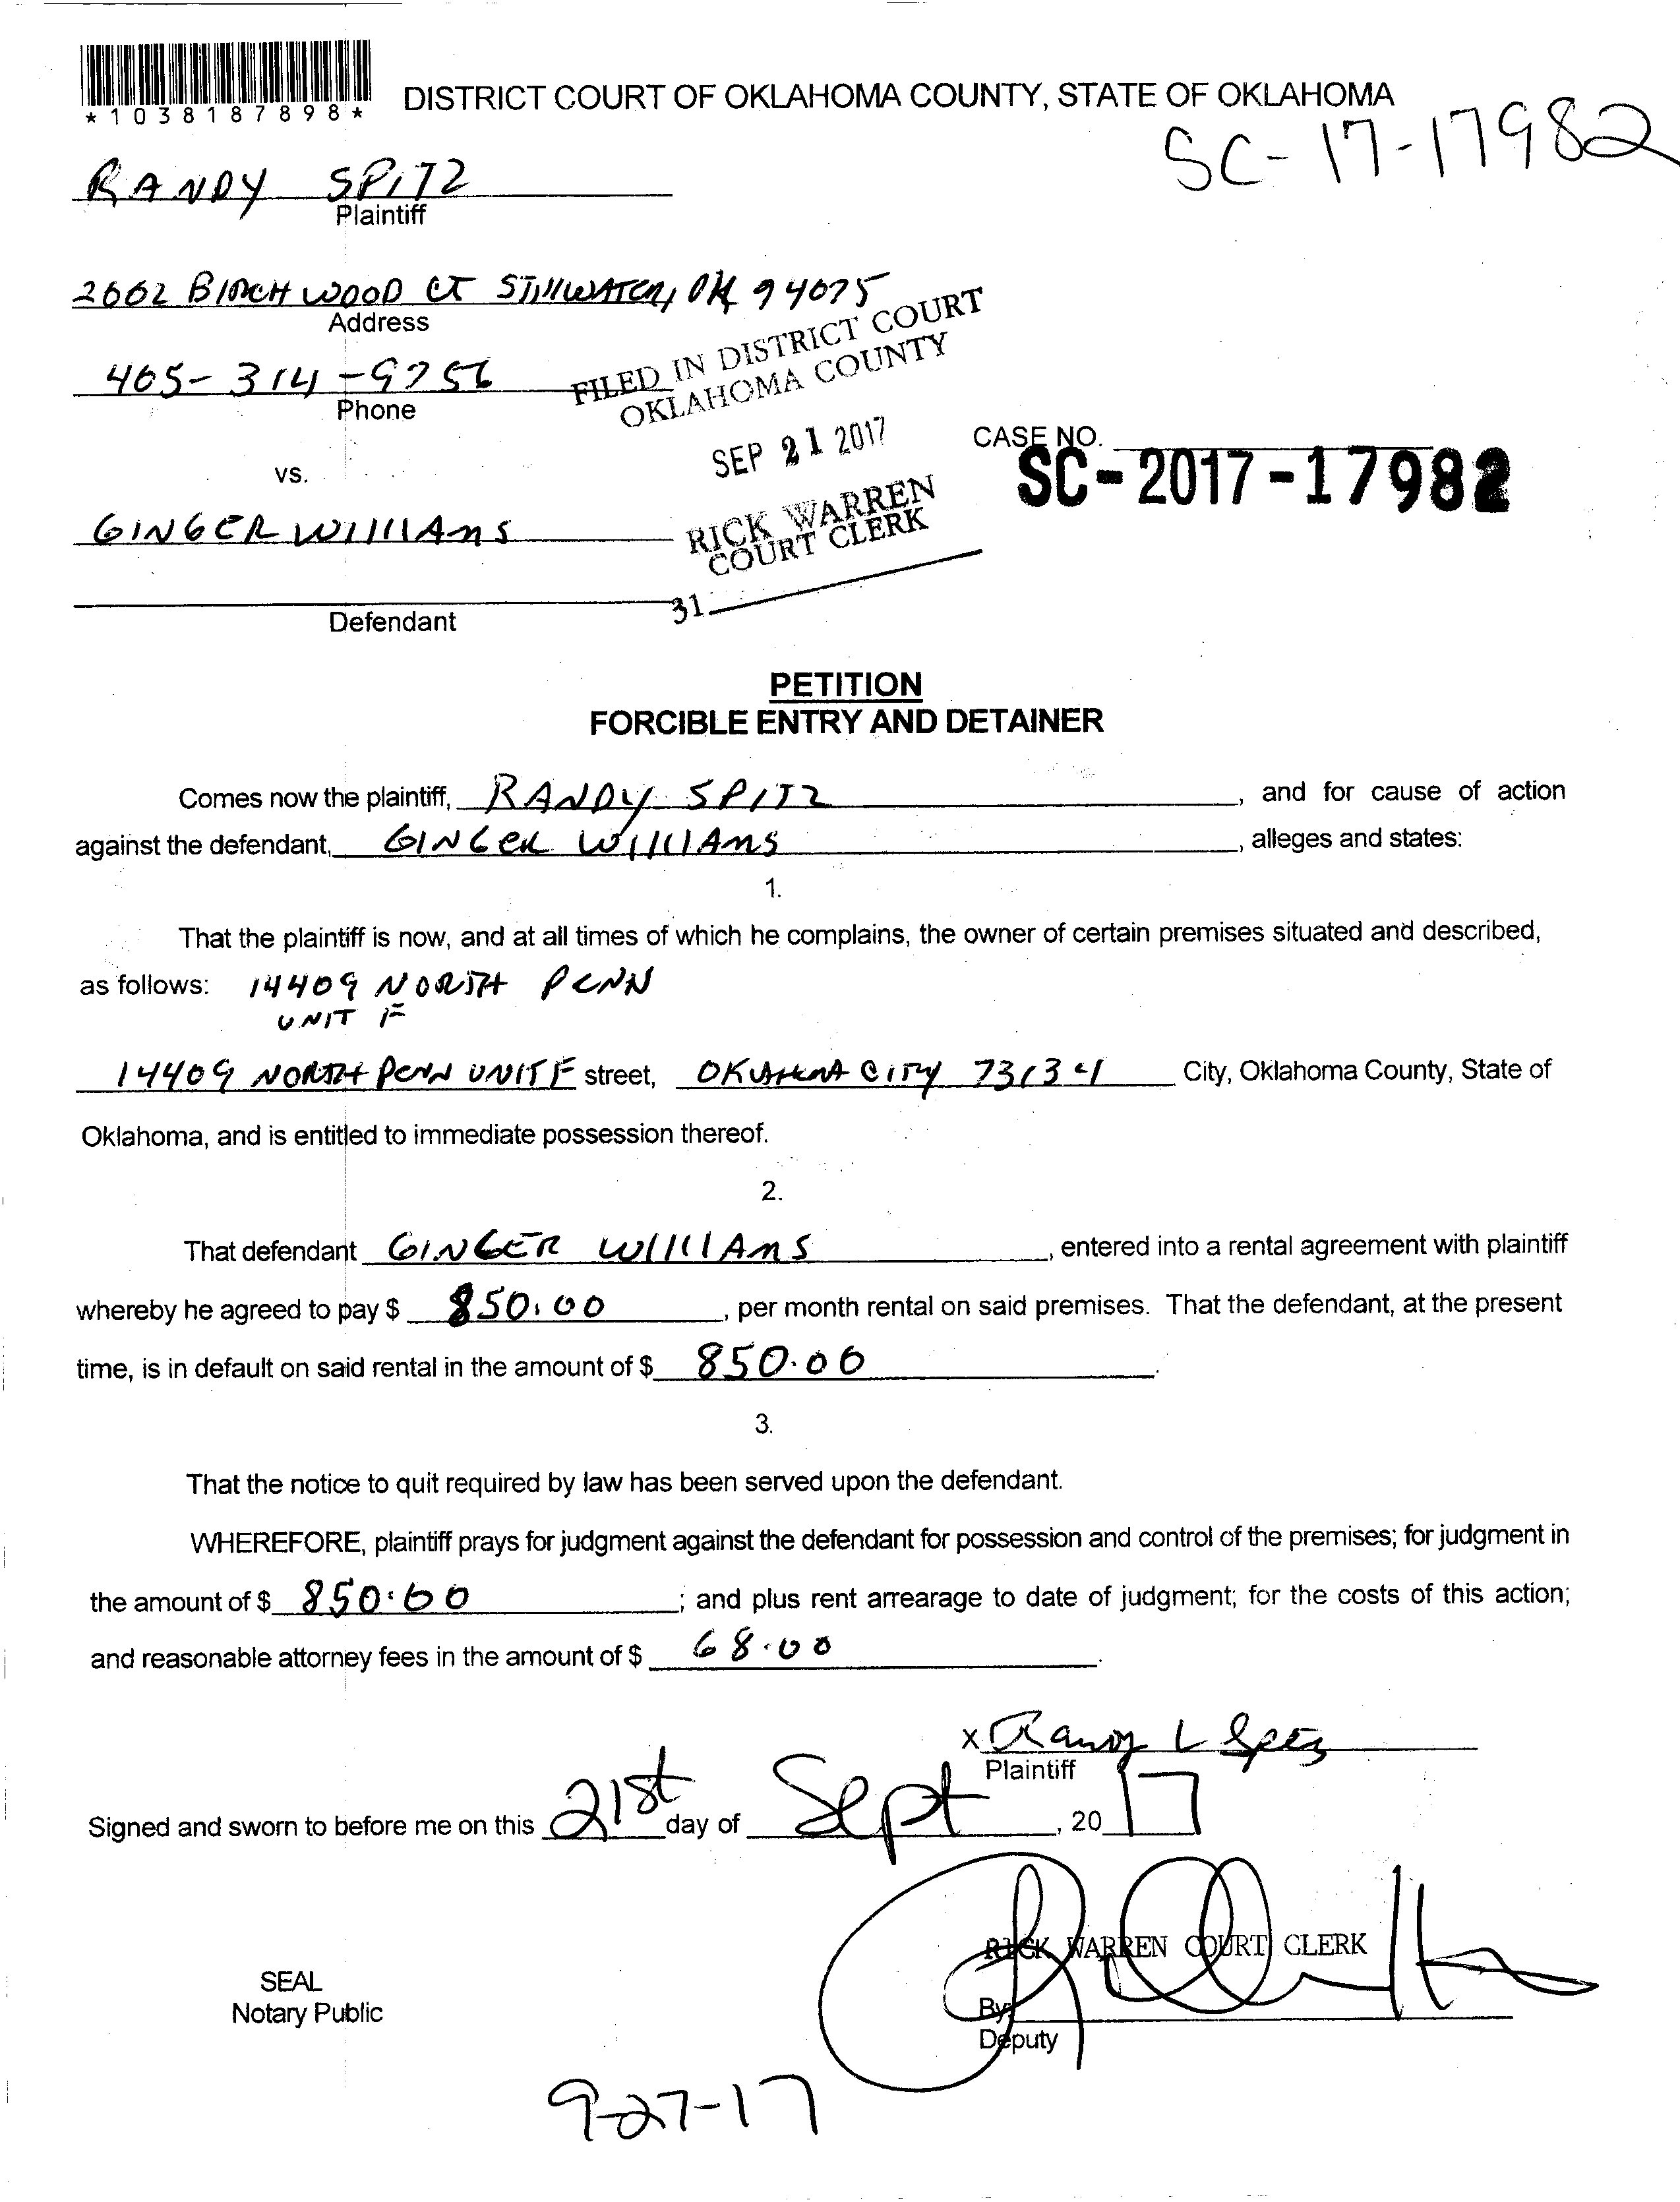 *1038187898*
DISTRICT COURT OF OKLAHOMA COUNTY, STATE OF OKLAHOMA
SC-17-17982
RANDY SPITZ
Plaintiff
2602 BIRCHWOOD CT STILLWATER, OK 74075
Address
405-314-9756
Phone
FILED IN DISTRICT COURT
OKLAHOMA COUNTY
SEP 21 2017
RICK WARREN
COURT CLERK
31
CASE NO.
SC-2017-17982
vs.
GINGER WILLIAMS
Defendant
PETITION
FORCIBLE ENTRY AND DETAINER
Comes now the plaintiff, RANDY SPITZ, and for cause of action
against the defendant, GINGER WILLIAMS, alleges and states:
1.
That the plaintiff is now, and at all times of which he complains, the owner of certain premises situated and described,
as follows: 14409 NORTH PENN
UNIT F
14409 NORTH PENN UNIT F street, CITY 73134 City, Oklahoma County, State of
Oklahoma, and is entitled to immediate possession thereof.
2.
That defendant GINGER WILLIAMS, entered into a rental agreement with plaintiff
whereby he agreed to pay $ 850.00, per month rental on said premises. That the defendant, at the present
time, is in default on said rental in the amount of $ 850.00.
3.
That the notice to quit required by law has been served upon the defendant.
WHEREFORE, plaintiff prays for judgment against the defendant for possession and control of the premises; for judgment in
the amount of $ 850.00; and plus rent arrearage to date of judgment; for the costs of this action;
and reasonable attorney fees in the amount of $ 68.00.
X Randy L Spitz
Plaintiff
Signed and sworn to before me on this 21st day of Sept, 20 17
RICK WARREN COURT CLERK
SEAL
Notary Public
By
Deputy
9-27-17